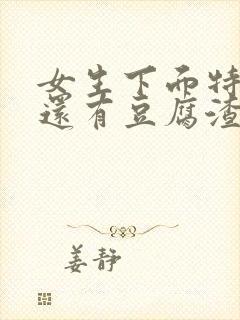 女生下面特
還有豆腐渣
姜静